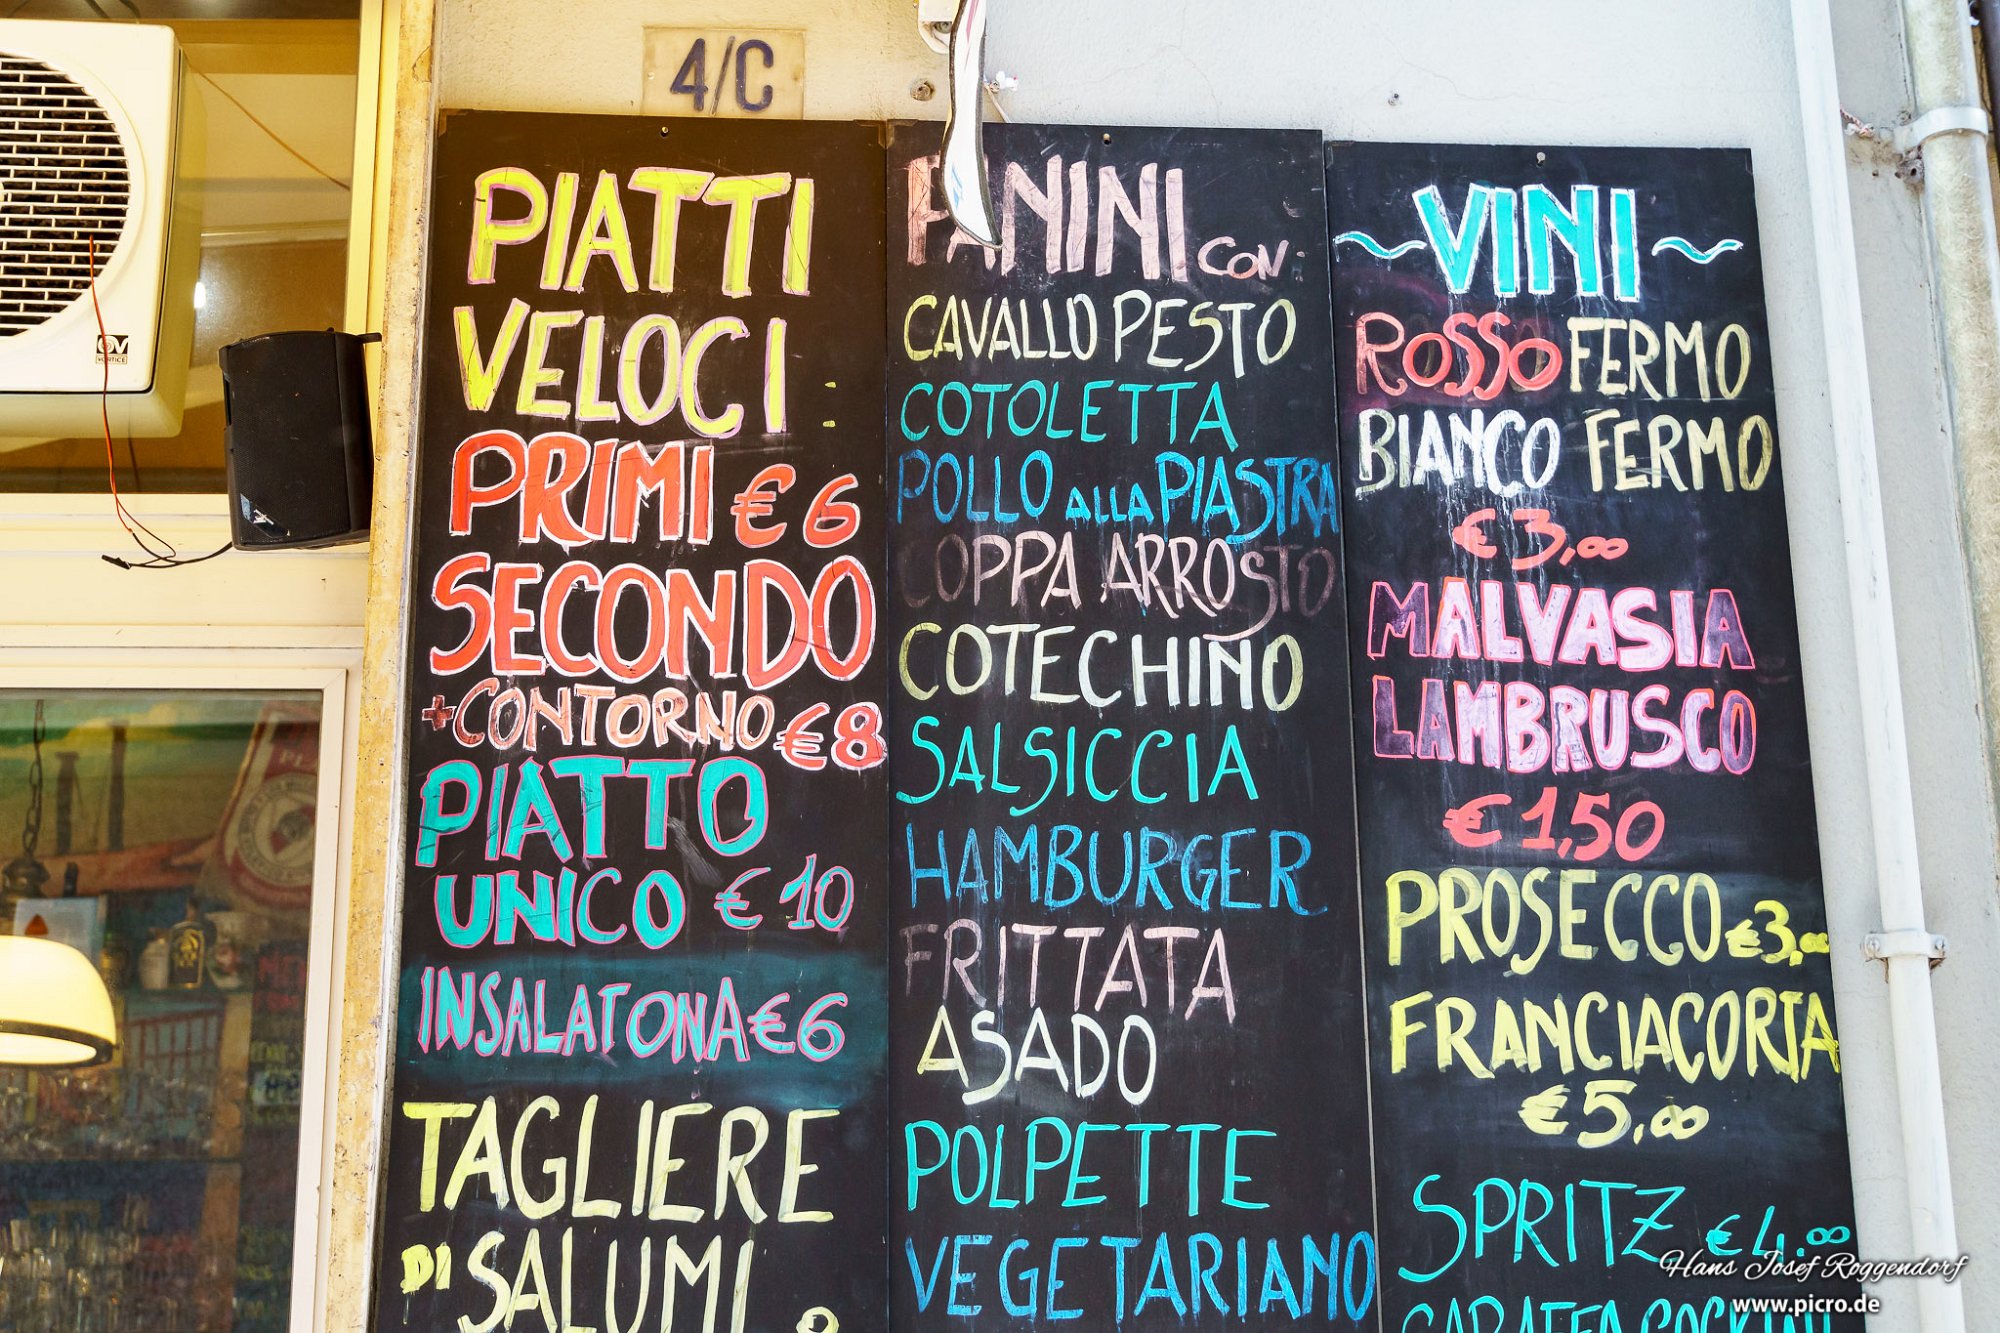 4/C
PIATTI
VELOCI:
PRIMI €6
SECONDO
+CONTORNO €8
PIATTO
UNICO €10
INSALATONA €6
TAGLIERE
DI SALUMI
PANINI CON:
CAVALLO PESTO
COTOLETTA
POLLO ALLA PIASTRA
COPPA ARROSTO
COTECHINO
SALSICCIA
HAMBURGER
FRITTATA
ASADO
POLPETTE
VEGETARIANO
~VINI~
ROSSO FERMO
BIANCO FERMO
€3,00
MALVASIA
LAMBRUSCO
€1,50
PROSECCO €3,00
FRANCIACORTA
€5,00
SPRITZ €4,00
VORTICE
Hans Josef Roggendorf
www.picro.de